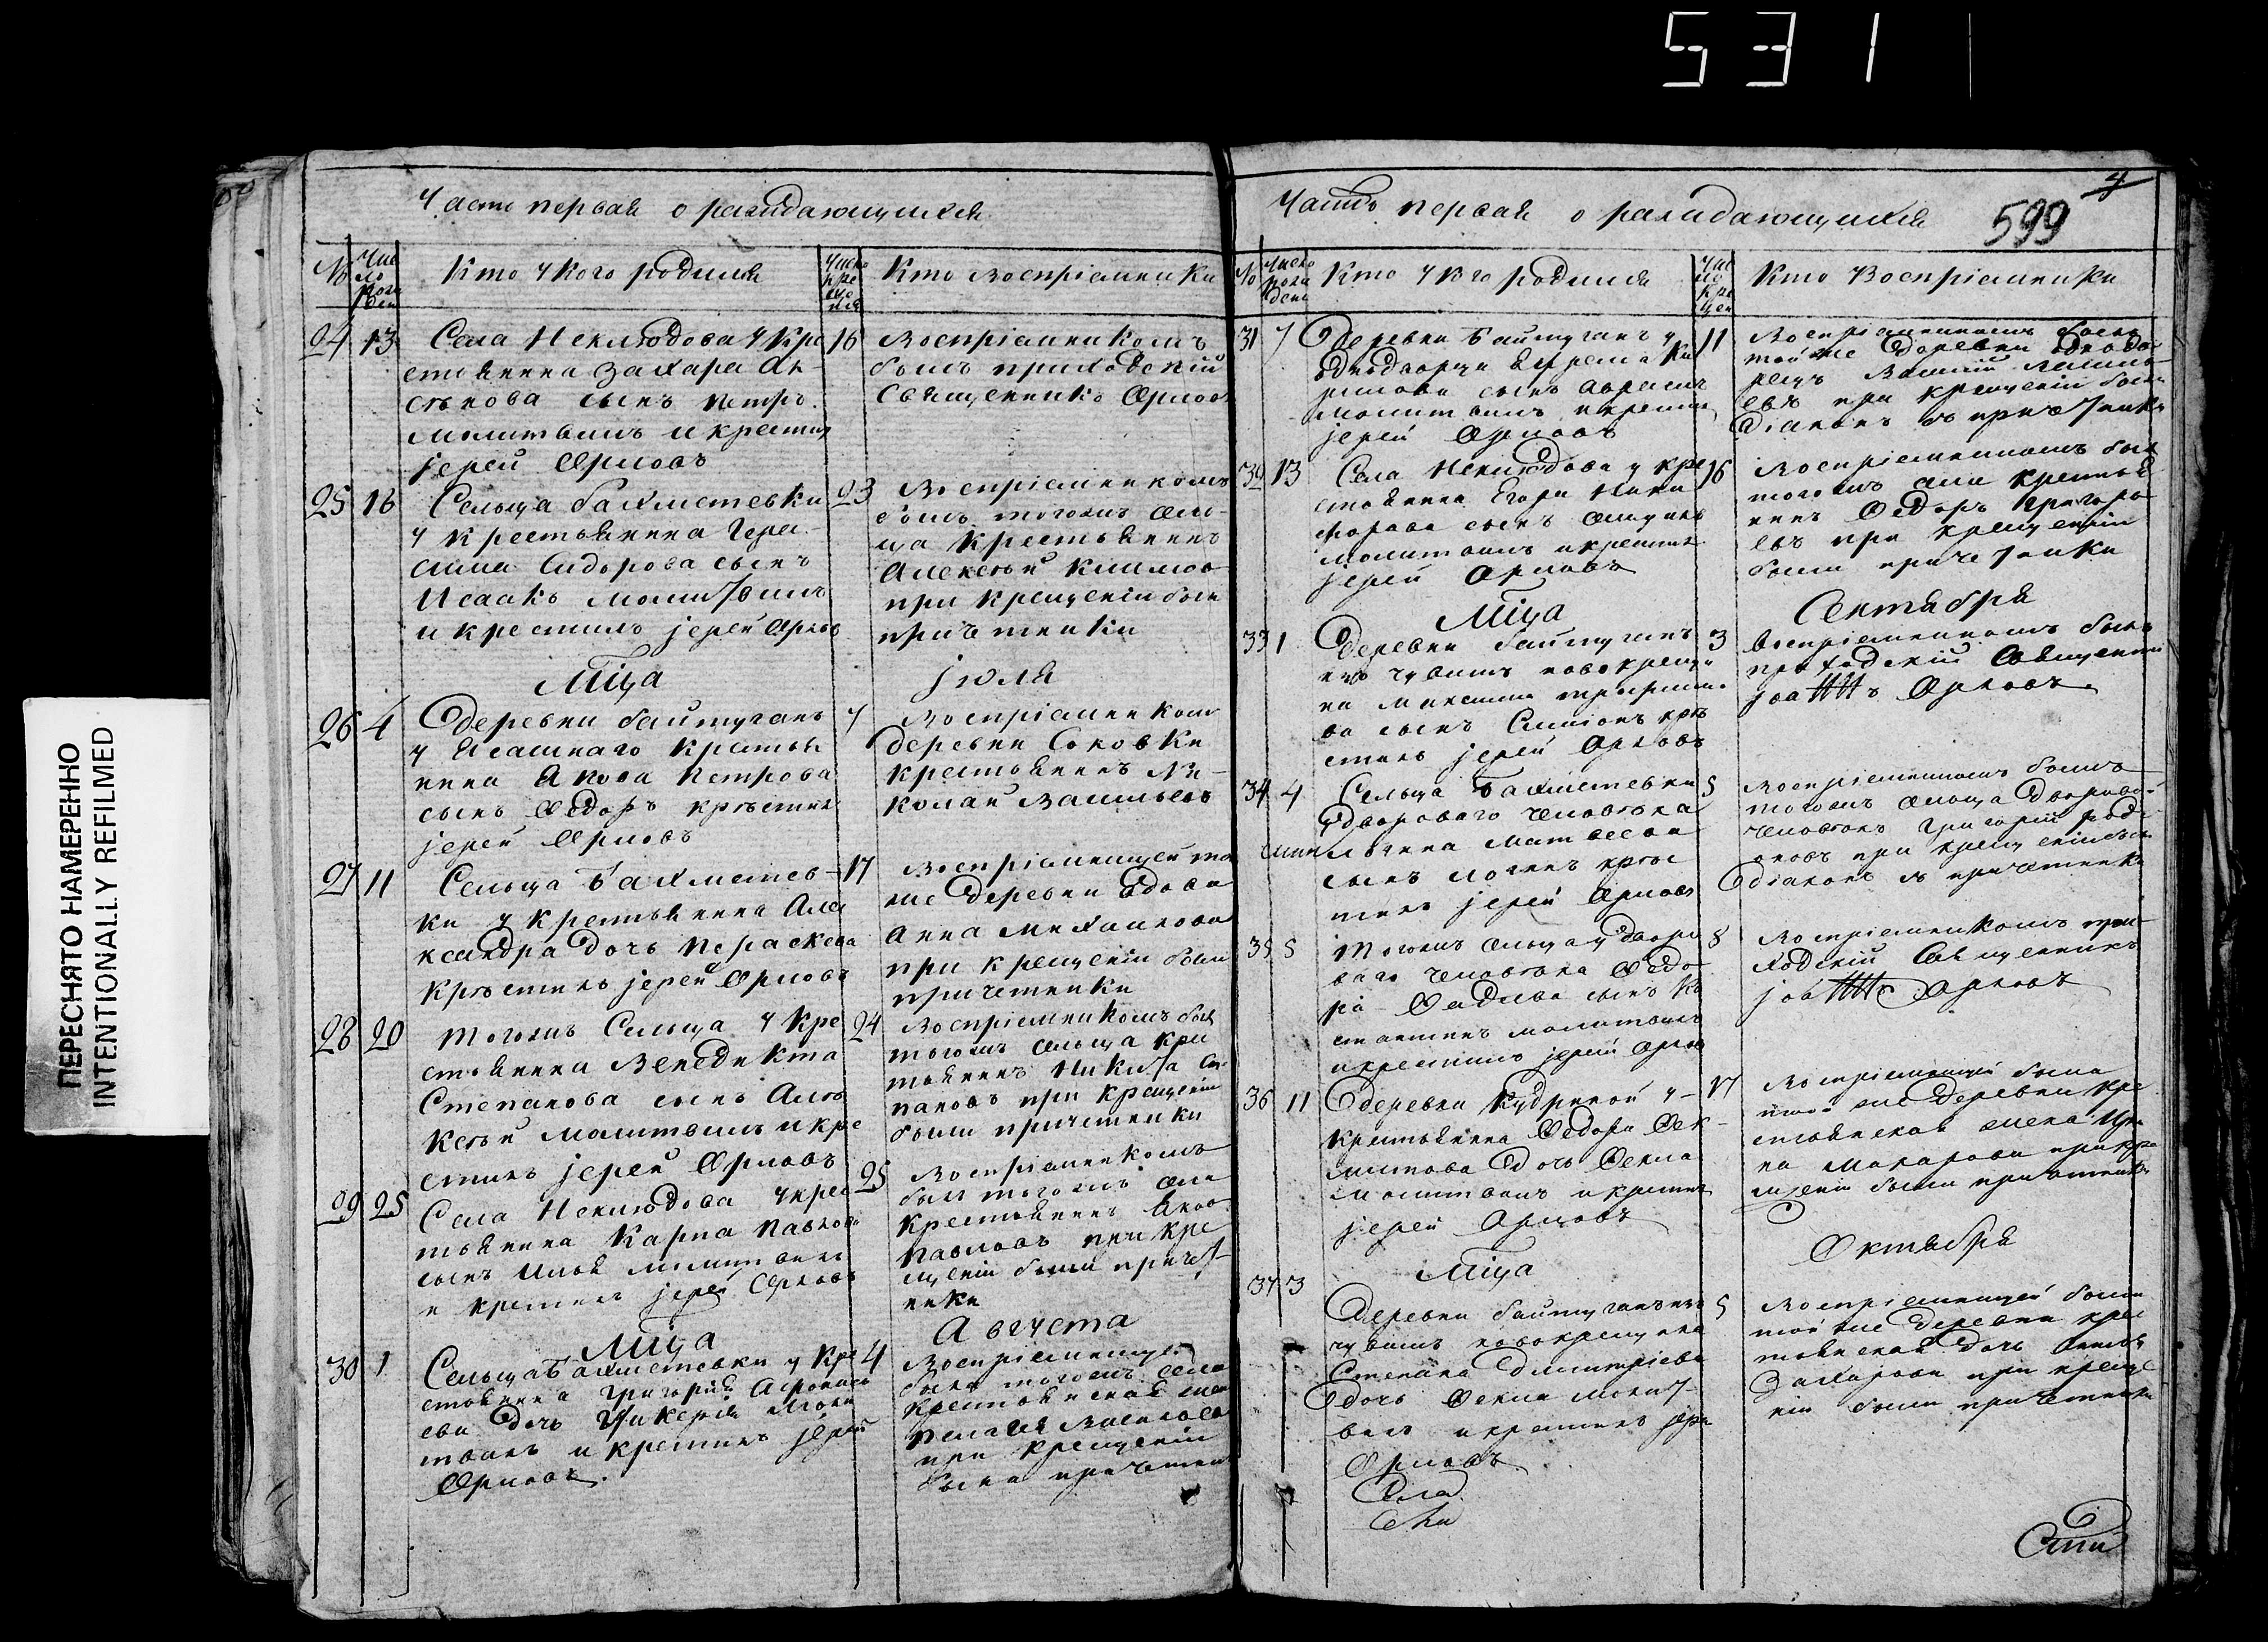 531
ПЕРЕСНЯТО НАМЕРЕННО
INTENTIONALLY REFILMED
Часть первая о раждающихся
№
Чис
ло
рож
ден
Кто у кого родился
Число
кре
ще
нія
Кто воспріемники
24 13 Села Неклюдова у кре
стьянина Захара Ак-
сѣнова сынъ Петръ
молитвилъ и крестил
іерей Орловъ
16 Воспріемникомъ
былъ приходскій
священникъ Орлов
25 16 Сельца Бахметевки
у крестьянина Гера-
сима Сидорова сынъ
Исаакъ молитвилъ
и крестилъ іерей Орловъ
23 Воспріемникомъ
былъ тогожъ сель-
ца крестьянинъ
Алексѣй
при крещеніи были
причетники
Мца Іюля
26 4 деревни Байтуганъ
у ясашнаго крестья
нина Якова Петрова
сынъ Ѳедоръ крѣстил
іерей Орловъ
7 Воспріемником
деревни Соковки
крестьянинъ Ни-
колай Васильевъ
27 11 Сельца Бахметев-
ки у крестьянина Але
ксандра дочь Пераскева
крѣстилъ іерей Орловъ
17 Воспріемницей то
же деревни вдова
Анна Михаилова
при крещеніи были
причетники
28 20 Тогожъ Сельца у кре
стьянина Венедикта
Степанова сынъ Але
ксѣй молитвилъ и кре
стилъ іерей Орловъ
24 Воспріемникомъ был
тогожъ сельца крес
тьянинъ Никита Сте
пановъ при крещеніи
были причетники
29 25 Села Неклюдова у крес
тьянина Карпа Павлова
сынъ Илья молитвилъ
и крестилъ іерей Орловъ
25 Воспріемникомъ
был тогожъ села
крестьянинъ Яков
Павловъ при кре
щеніи были причет
ники
Мца Августа
30 1 Сельца Бахметевки у кре
стьянина Григорія Афонась
ева дочь Гликерія моли
твилъ и крестилъ іерей
Орловъ.
4 Воспріемницей
была тогожъ села
крестьянская жена
Пелагея Васильева
при крещеніи
были причетни
Часть первая о раждающихся
4
599
№
Число
рож
дені
Кто у кого родился
Чис
ло
кре
щен
Кто Воспріемники
31 7 Деревни Байтуганъ у
однодворца Ефрема Ки
рилова сынъ
молитвилъ и крестил
іерей Орловъ
11 Воспріемникомъ былъ
той же деревни однодво
рецъ Василий
евъ при крещеніи были
діаконъ съ причетник
32 13 Села Неклюдова у кре
стьянина Егора Ники
форова сынъ
молитвилъ и крестилъ
іерей Орловъ
16 Воспріемникомъ был
тогожъ села крестья
нинъ Ѳедоръ Григорь
евъ при крещеніи
были причетники
Мца Сентября
33 1 Деревни Байтуганъ
изъ чувашъ новокреще
на Максима Трофимо
ва сынъ Симіонъ крѣ
стилъ іерей Орловъ
3 Воспріемникомъ былъ
приходскій священник
Іоаннъ Орловъ.
34 4 Сельца Бахметевки
дворового человѣка
Матвеева
сынъ Логинъ крѣс
тилъ іерей Орловъ
5 Воспріемникомъ былъ
тогожъ сельца дворовой
человѣкъ Григорій Роді-
оновъ при крещеніи был
діаконъ съ причетники
35 5 Тогожъ сельца у дворо
ваго человѣка Ѳедо-
ра сынъ Ко
стантинъ молитвилъ
и крестилъ іерей Орлов
8 Воспріемникомъ при-
ходскій Священникъ
Іоаннъ Орловъ
36 11 деревни Кудриной у-
крестьянина Ѳедора Ѳек-
листова дочь Ѳекла
молитвилъ и крестил
іерей Орловъ
17 Воспріемницей была
той же деревни кре
стьянская жена Ири
на Макарова при кре
щеніи были причетники
Мца Октября
37 3 Деревни Байтуганъ изъ
чувашъ новокрещена
Степана Димитріева
дочь Ѳекла молит-
вилъ и крестилъ іерей
Орловъ
5 Воспріемницей была
той же деревни крес
тьянская дочь
Захарова при креще
ніи были причетники